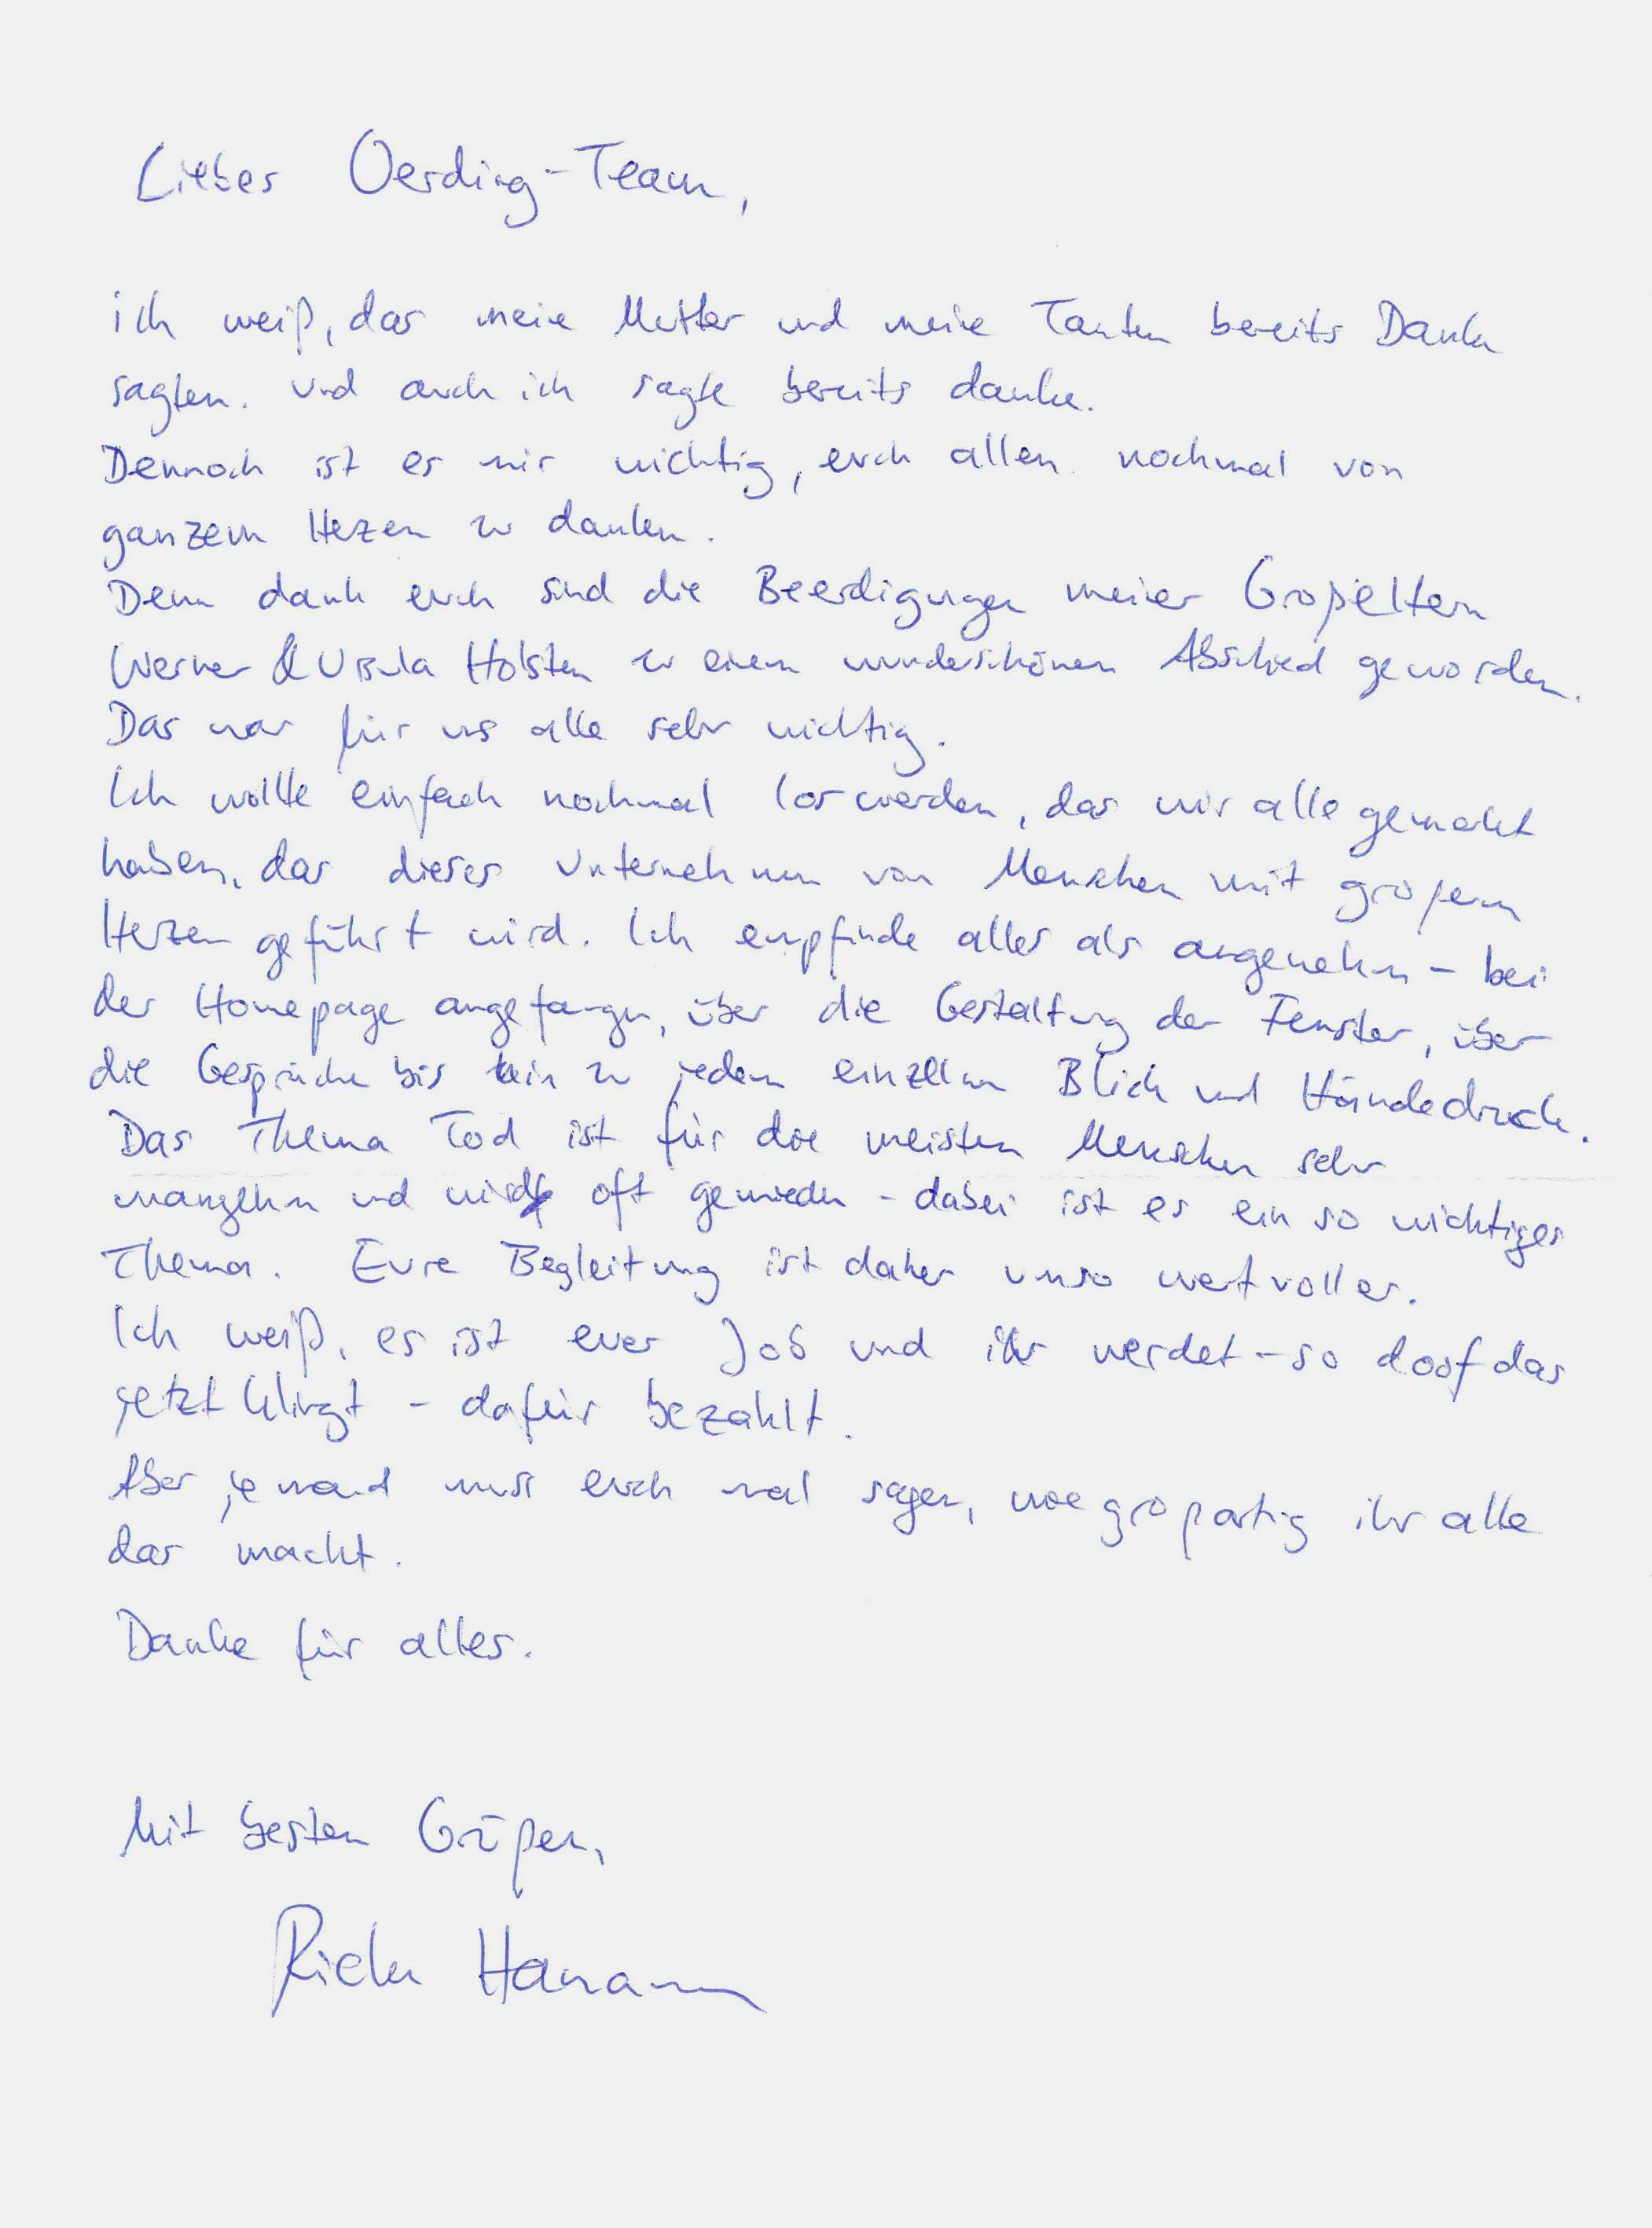 Liebes Oerding-Team,
ich weiß, das meine Mutter und meine Tanten bereits Danke
sagten. Und auch ich sagte bereits danke.
Dennoch ist es mir wichtig, euch allen nochmal von
ganzem Herzen zu danken.
Denn dank euch sind die Beerdigungen meiner Großeltern
Werner & Ursula Holsten zu einem wunderschönen Abschied geworden.
Das war für uns alle sehr wichtig.
Ich wollte einfach nochmal loswerden, das wir alle gemerkt
haben, das dieses Unternehmen von Menschen mit großem
Herzen geführt wird. Ich empfinde alles als angenehm – bei
der Homepage angefangen, über die Gestaltung der Fenster, über
die Gespräche bis hin zu jedem einzelnen Blick und Händedruck.
Das Thema Tod ist für die meisten Menschen sehr
unangenehm und wird oft gemieden – dabei ist es ein so wichtiges
Thema. Eure Begleitung ist daher umso wertvoller.
Ich weiß, es ist euer Job und ihr werdet – so doof das
jetzt klingt – dafür bezahlt.
Aber jemand muss euch mal sagen, wie großartig ihr alle
das macht.
Danke für alles.
Mit besten Grüßen,